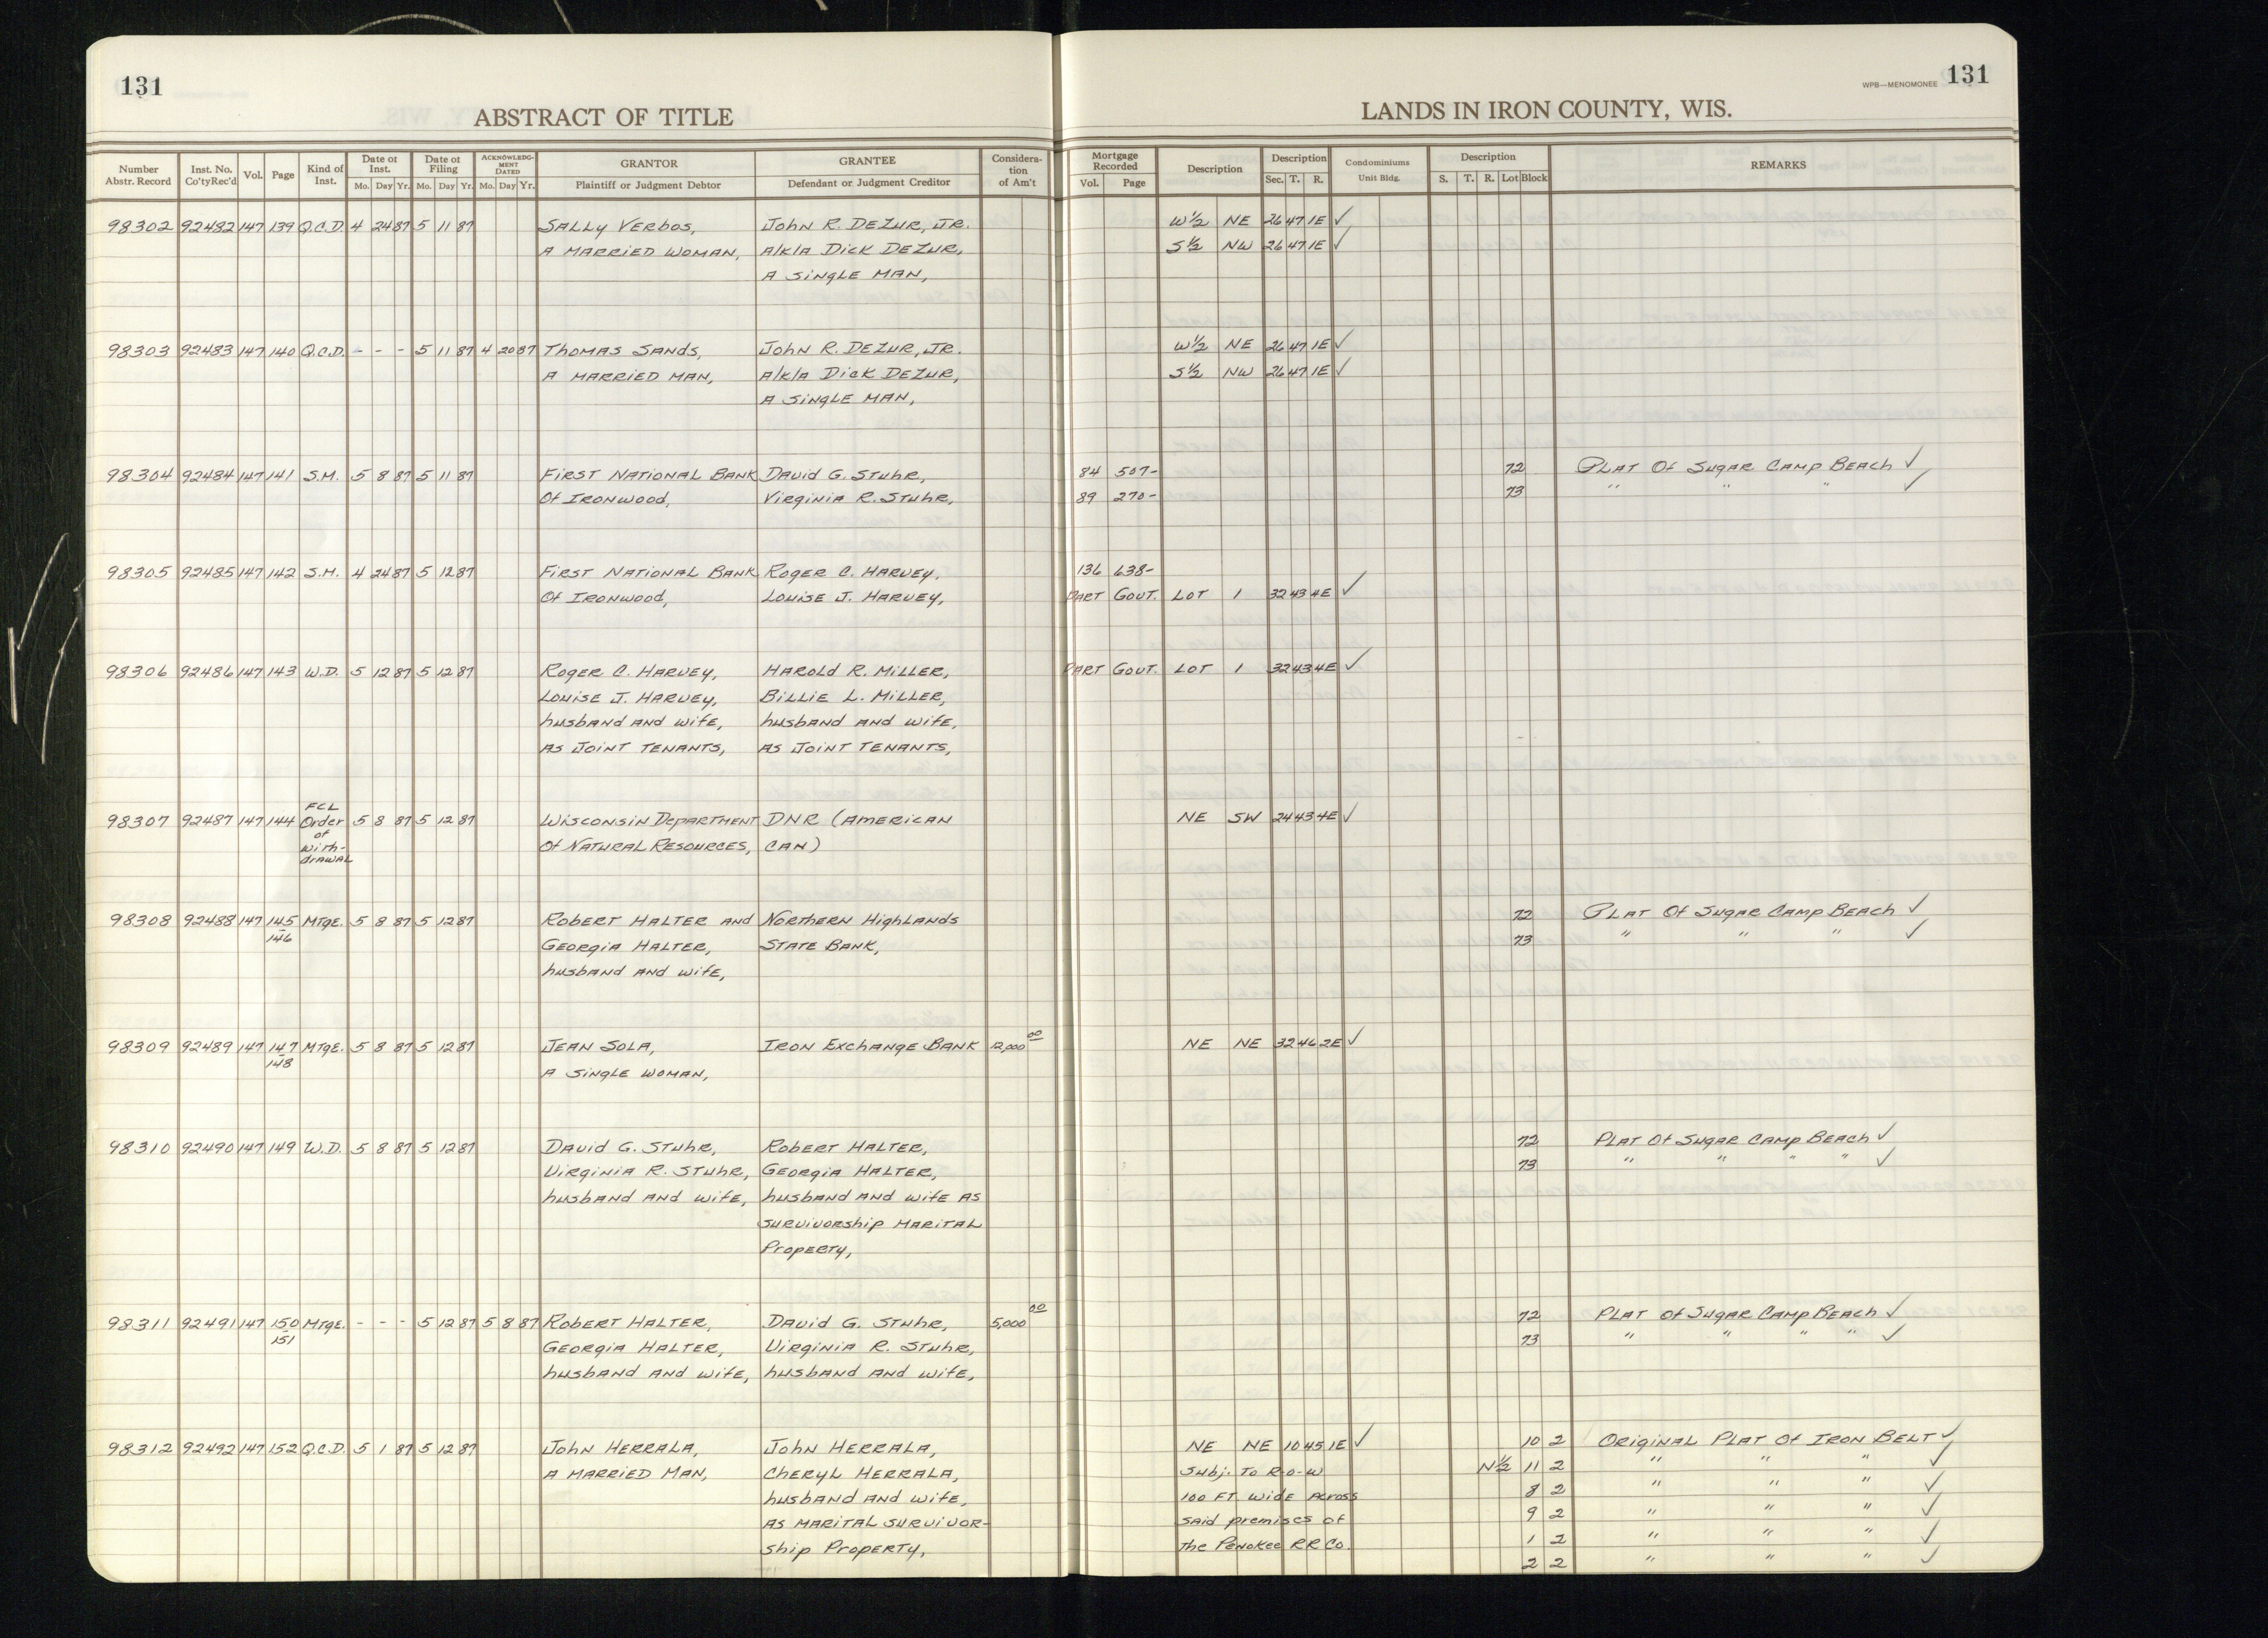 131
WPB—MENOMONEE 131
ABSTRACT OF TITLE LANDS IN IRON COUNTY, WIS.
Number Abstr. Record Inst. No. Co'ty Rec'd Vol. Page Kind of Inst. Date of Inst. Mo. Day Yr. Date of Filing Mo. Day Yr. ACKNOWLEDGMENT DATED Mo. Day Yr. GRANTOR Plaintiff or Judgment Debtor GRANTEE Defendant or Judgment Creditor Consideration of Am't Mortgage Recorded Vol. Page Description Description Sec. T. R. Condominiums Unit Bldg. Description S. T. R. Lot Block REMARKS
98302 92482 147 139 Q.C.D. 4 24 87 5 11 87 Sally Verbos, John R. DeZur, Jr. W½ NE 26 47 1E ✓
A MARRIED WOMAN, A/k/a Dick DeZur, S½ NW 26 47 1E ✓
A Single Man,
98303 92483 147 140 Q.C.D. - - - 5 11 87 4 20 87 Thomas Sands, John R. DeZur, Jr. W½ NE 26 47 1E ✓
A MARRIED MAN, A/k/a Dick DeZur, S½ NW 26 47 1E ✓
A Single Man,
98304 92484 147 141 S.M. 5 8 87 5 11 87 First National Bank David G. Stuhr, 84 507- 72 Plat Of Sugar Camp Beach ✓
Of Ironwood, Virginia R. Stuhr, 89 270- 73 " " " ✓
98305 92485 147 142 S.M. 4 24 87 5 12 87 First National Bank Roger C. Harvey, 136 638-
Of Ironwood, Louise J. Harvey, Part Gout. Lot 1 32 43 4E ✓
98306 92486 147 143 W.D. 5 12 87 5 12 87 Roger C. Harvey, Harold R. Miller, Part Gout. Lot 1 32 43 4E ✓
Louise J. Harvey, Billie L. Miller,
husband and wife, husband and wife,
as Joint Tenants, as Joint Tenants,
98307 92487 147 144 FCL Order of With-drawal 5 8 87 5 12 87 Wisconsin Department DNR (American NE SW 24 43 4E ✓
Of Natural Resources, Can)
98308 92488 147 145-146 Mtge. 5 8 87 5 12 87 Robert Halter and Northern Highlands 72 Plat Of Sugar Camp Beach ✓
Georgia Halter, State Bank, 73 " " " ✓
husband and wife,
98309 92489 147 147-148 Mtge. 5 8 87 5 12 87 Jean Sola, Iron Exchange Bank 12,000 00 NE NE 32 46 2E ✓
A Single Woman,
98310 92490 147 149 W.D. 5 8 87 5 12 87 David G. Stuhr, Robert Halter, 72 Plat Of Sugar Camp Beach ✓
Virginia R. Stuhr, Georgia Halter, 73 " " " " ✓
husband and wife, husband and wife as
survivorship marital
Property,
98311 92491 147 150-151 Mtge. - - - 5 12 87 5 8 87 Robert Halter, David G. Stuhr, 5,000 00 72 Plat Of Sugar Camp Beach ✓
Georgia Halter, Virginia R. Stuhr, 73 " " " " ✓
husband and wife, husband and wife,
98312 92492 147 152 Q.C.D. 5 1 87 5 12 87 John Herrala, John Herrala, NE NE 10 45 1E ✓ 10 2 Original Plat Of Iron Belt ✓
A Married Man, Cheryl Herrala, Subj. To R-o-w N½ 11 2 " " " ✓
husband and wife, 100 Ft. wide Across 8 2 " " " ✓
as marital survivor- said premises of 9 2 " " " ✓
ship Property, the Penokee RR Co. 1 2 " " " ✓
2 2 " " " ✓